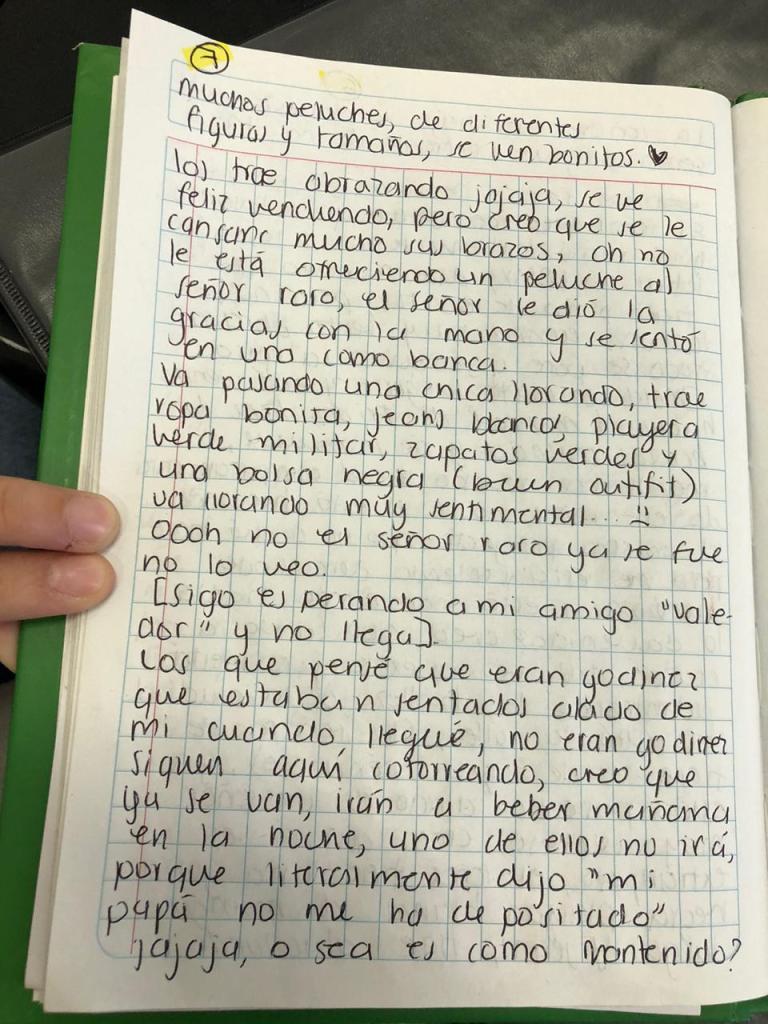 7
muchos peluches, de diferentes
figuras y tamaños, se ven bonitos. ♥
los trae abrazando jajaja, se ve
feliz vendiendo, pero creo que se le
cansanc mucho sus brazos, oh no
le está ofreciendo un peluche al
señor raro, el señor le dió la
gracias con la mano y se sentó
en una como banca.
Va pasando una chica llorando, trae
ropa bonita, jeans blancos, playera
verde militar, zapatos verdes y
una bolsa negra (buen outifit)
va llorando muy sentimental... :(
Oooh no el señor raro ya se fue
no lo veo.
[sigo esperando a mi amigo "vale-
dor" y no llega].
Los que pensé que eran godinez
que estaban sentados alado de
mi cuando llegué, no eran godinez
siguen aquí cotorreando, creo que
ya se van, irán a beber mañana
en la noche, uno de ellos no irá,
porque literalmente dijo "mi
papá no me ha depositado"
jajaja, o sea es como mantenido?